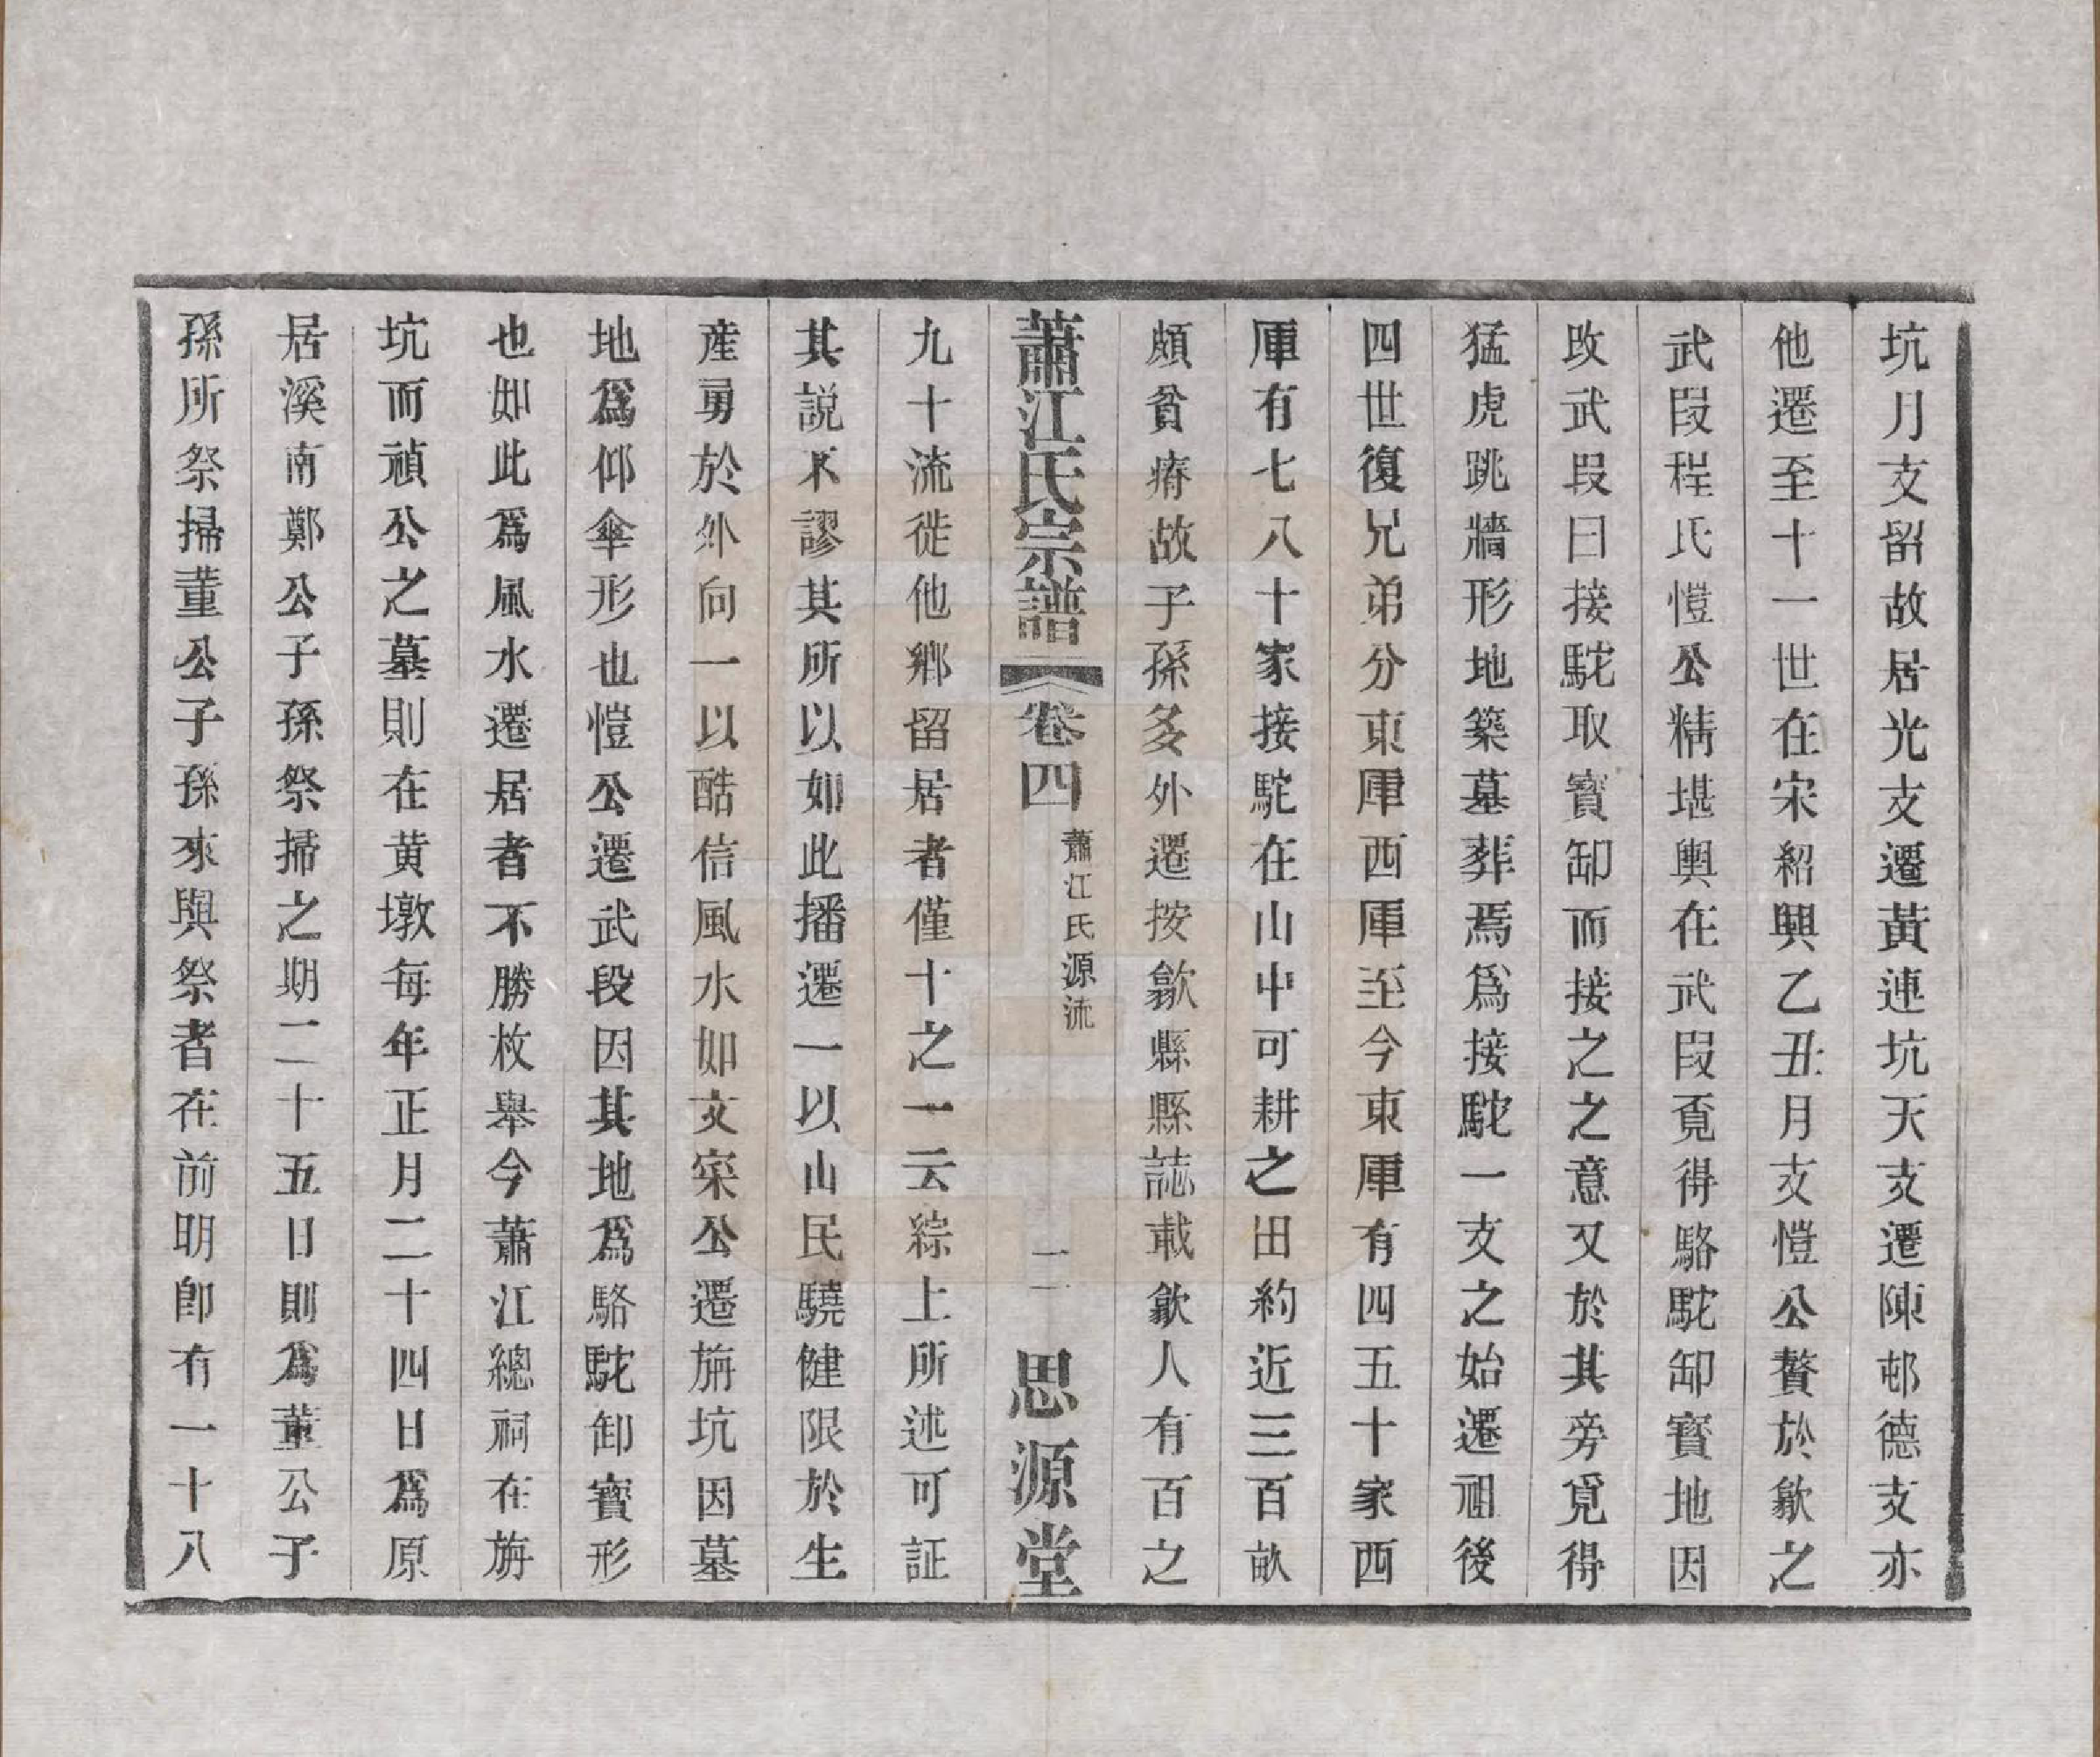 坑月支留故居光支遷黃連坑天支遷陳邨德支亦
他遷至十一世在宋紹興乙丑月支愷公贅於歙之
武段程氏愷公精堪輿在武段覓得駱駝卸寶地因
改武段曰接駝取寶卸而接之之意又於其旁覓得
猛虎跳牆形地築墓葬焉爲接駝一支之始遷祖後
四世復兄弟分東厙西厙至今東厙有四五十家西
厙有七八十家接駝在山中可耕之田約近三百畝
頗貧瘠故子孫多外遷按歙縣縣誌載歙人有百之
蕭江氏宗譜 卷四 蕭江氏源流 二 思源堂
九十流徙他鄉留居者僅十之一云綜上所述可証
其説不謬其所以如此播遷一以山民驍健限於生
產勇於外向一以酷信風水如文寀公遷旃坑因墓
地爲仰傘形也愷公遷武段因其地爲駱駝卸寶形
也如此爲風水遷居者不勝枚舉今蕭江總祠在旃
坑而禎公之墓則在黃墩每年正月二十四日爲原
居溪南鄭公子孫祭掃之期二十五日則爲董公子
孫所祭掃董公子孫來與祭者在前明卽有一十八